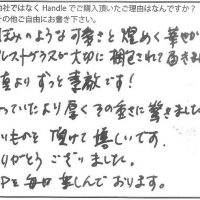 社ではなく Handle でご購入頂いたご理由はなんですか？
その他ご自由にお書き下さい。
のような可愛さと煌めく華やか
レストグラスが大切に梱包されて届きまし
真よりずっと素敵です！
っていたより厚くその重さに驚きました
いものを頂けて嬉しいです。
りがとうございました。
Pを毎日楽しんでおります。